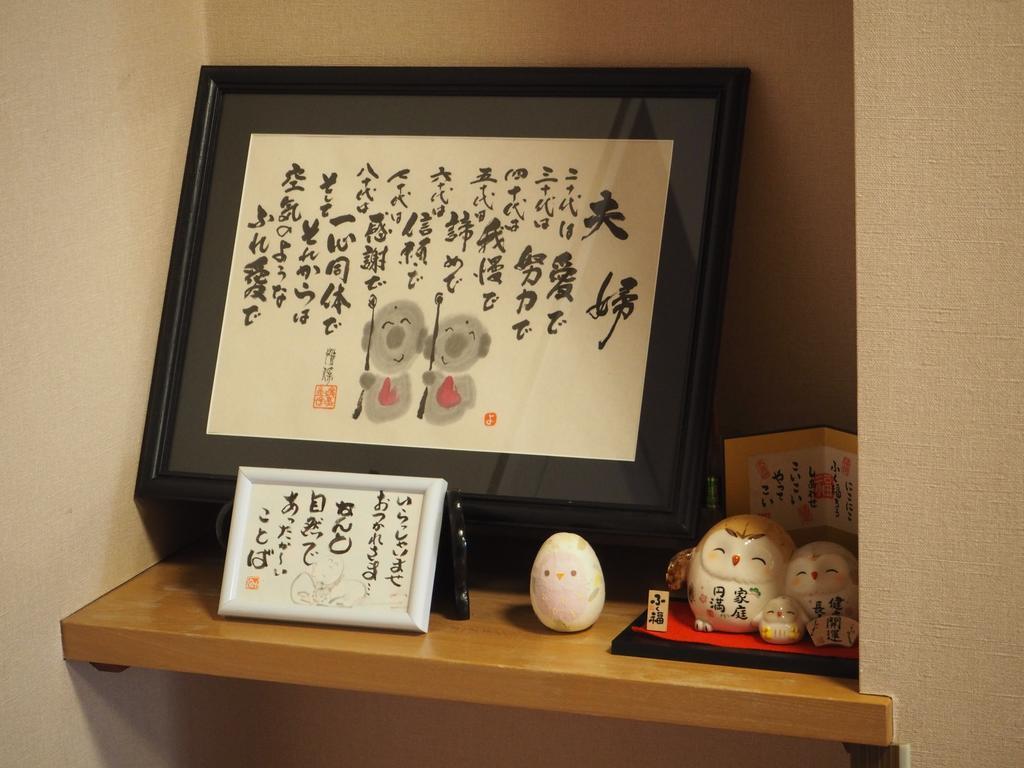 夫婦
二十代は
愛で
三十代は
努力で
四十代は
我慢で
五十代は
諦めで
六十代は
信頼で
七十代は
感謝で
八十代は
一心同体で
そして
それからは
空気のような
ふれ愛で
いらっしゃいませ
おつかれさま…
なんと
自然で
あったか〜い
ことば
にこにこ
ふく福ろう
しあわせ
福
こいこい
やってこい
ふく福
家庭
円満
健康
開運
長寿